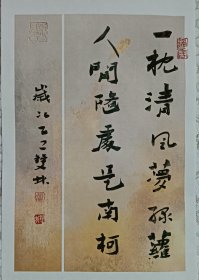 一枕清風夢綠蘿
人間隨處是南柯
歲次乙巳雙林